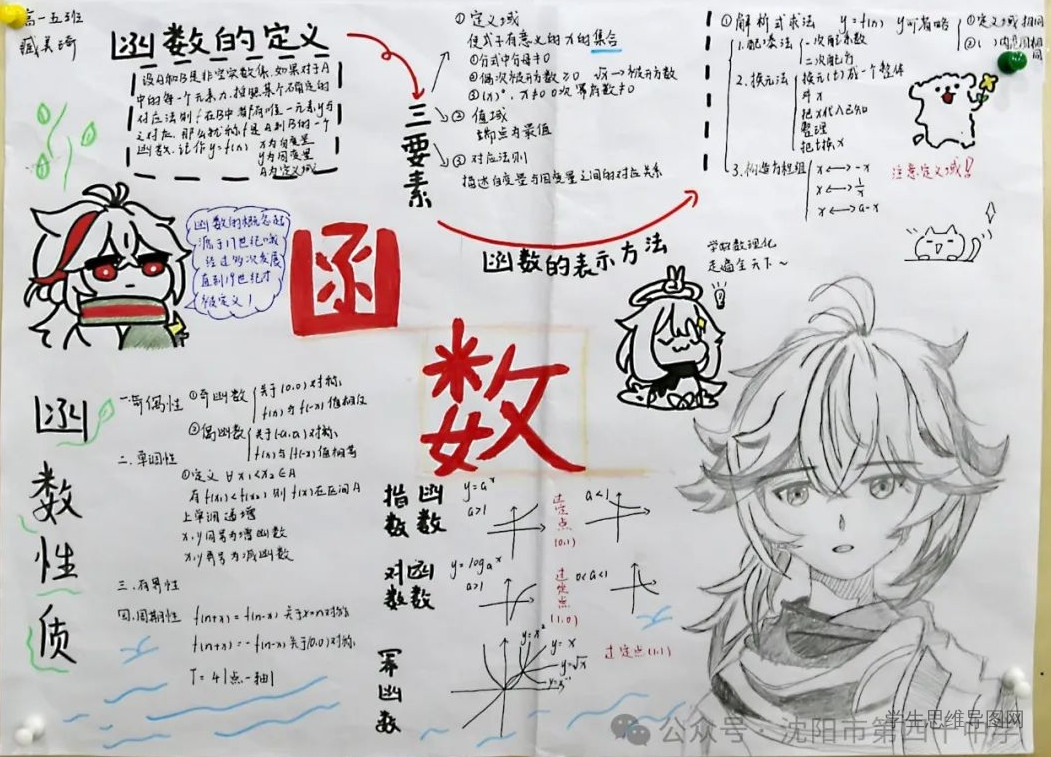 高一五班
臧美琦
函数的定义
设A和B是非空实数集,如果对于A
中的每一个元素x,按照某个确定的
对应法则f,在B中都有唯一元素y与
之对应,那么就称f是A到B的一个
函数,记作y=f(x)
x为自变量
y为因变量
A为定义域
三要素
① 定义域
使式子有意义的x的集合
①分式中分母≠0
②偶次被开方数≥0 √x→被开方数
② 值域
端点为最值
③ 对应法则
描述自变量与因变量之间的对应关系
函数的表示方法
①解析式求法 y=f(x)
1.配凑法
一次用系数
二次配方
2.换元法
换元(t)成一个整体
求x
把x代入已知
整理
把t换x
3.构造方程组
x⟷-x
x⟷1/x
x⟷a-x
①定义域相同
注意定义域!!
函数的概念起
源于17世纪
经过多次发展
直到19世纪才
被定义!
学好数理化
走遍全天下~
函数
函数性质
一.奇偶性
①奇函数
关于(0,0)对称
f(x)与f(-x)值相反
②偶函数
二.单调性
①定义 ∀x₁<x₂∈A
有f(x₁)<f(x₂)则f(x)在区间A
上单调递增
x,y同号为增函数
x,y异号为减函数
三.有界性
四.周期性
T=4|点-轴|
指数函数
y=aˣ
a>1
过定点
(0,1)
a<1
对数函数
y=logₐx
a>1
过定点
(1,0)
0<a<1
幂函数
y=x²
y=x
y=√x
y=x⁻¹
过定点(1,1)
公众号·沈阳市第四十中学
学生思维导图网